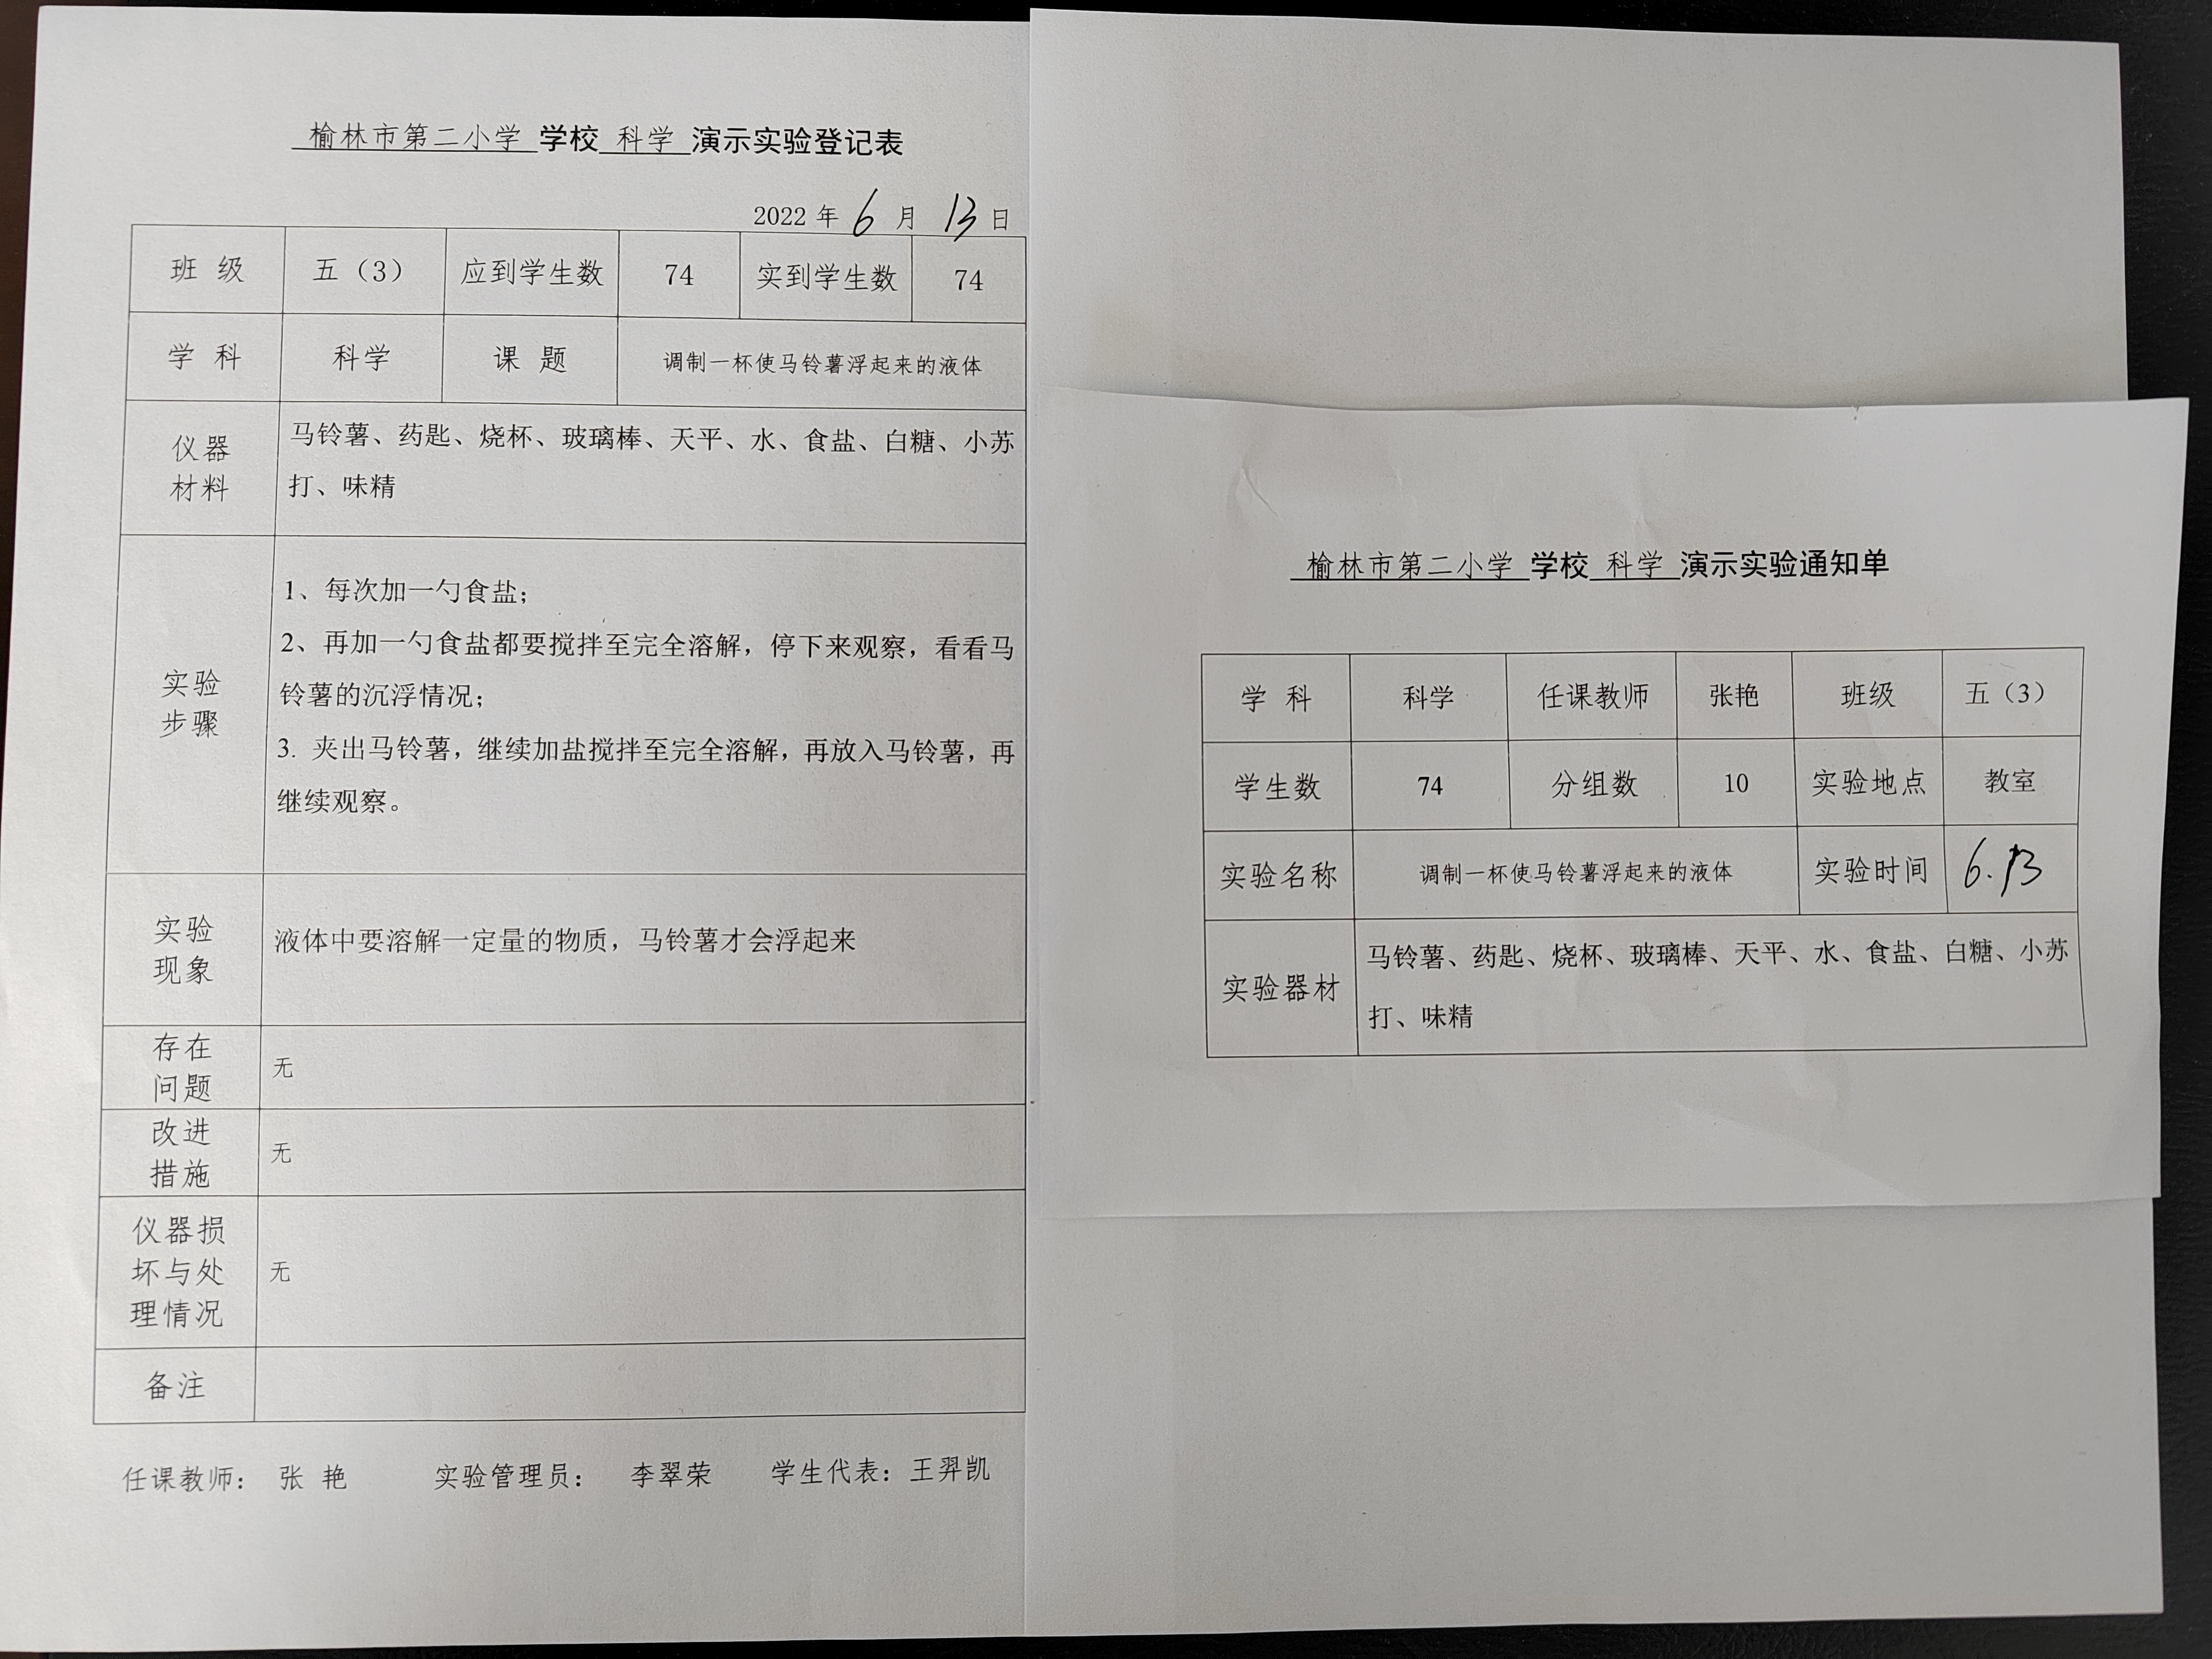 榆林市第二小学 学校 科学 演示实验登记表
2022 年 6 月 13 日
班 级 五（3） 应到学生数 74 实到学生数 74
学 科 科学 课 题 调制一杯使马铃薯浮起来的液体
仪器
材料
马铃薯、药匙、烧杯、玻璃棒、天平、水、食盐、白糖、小苏
打、味精
实验
步骤
1、每次加一勺食盐；
2、再加一勺食盐都要搅拌至完全溶解，停下来观察，看看马
铃薯的沉浮情况；
3. 夹出马铃薯，继续加盐搅拌至完全溶解，再放入马铃薯，再
继续观察。
实验
现象
液体中要溶解一定量的物质，马铃薯才会浮起来
存在
问题
无
改进
措施
无
仪器损
坏与处
理情况
无
备注
任课教师： 张 艳 实验管理员： 李翠荣 学生代表：王羿凯
榆林市第二小学 学校 科学 演示实验通知单
学 科 科学 任课教师 张艳 班级 五（3）
学生数 74 分组数 10 实验地点 教室
实验名称 调制一杯使马铃薯浮起来的液体 实验时间 6.13
实验器材
马铃薯、药匙、烧杯、玻璃棒、天平、水、食盐、白糖、小苏
打、味精